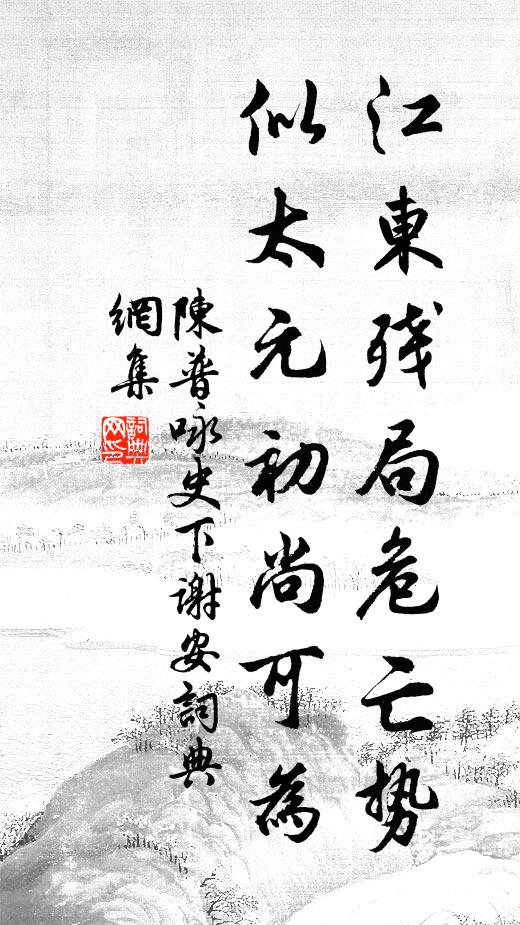 江東殘局危亡势
似太元初尚可為
陳普咏史下謝安詞典
網集
詞典
网印